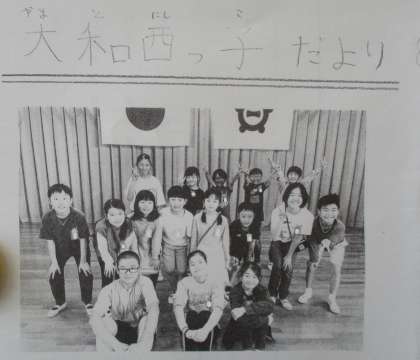 やま と にし こ
大和西っ子だより